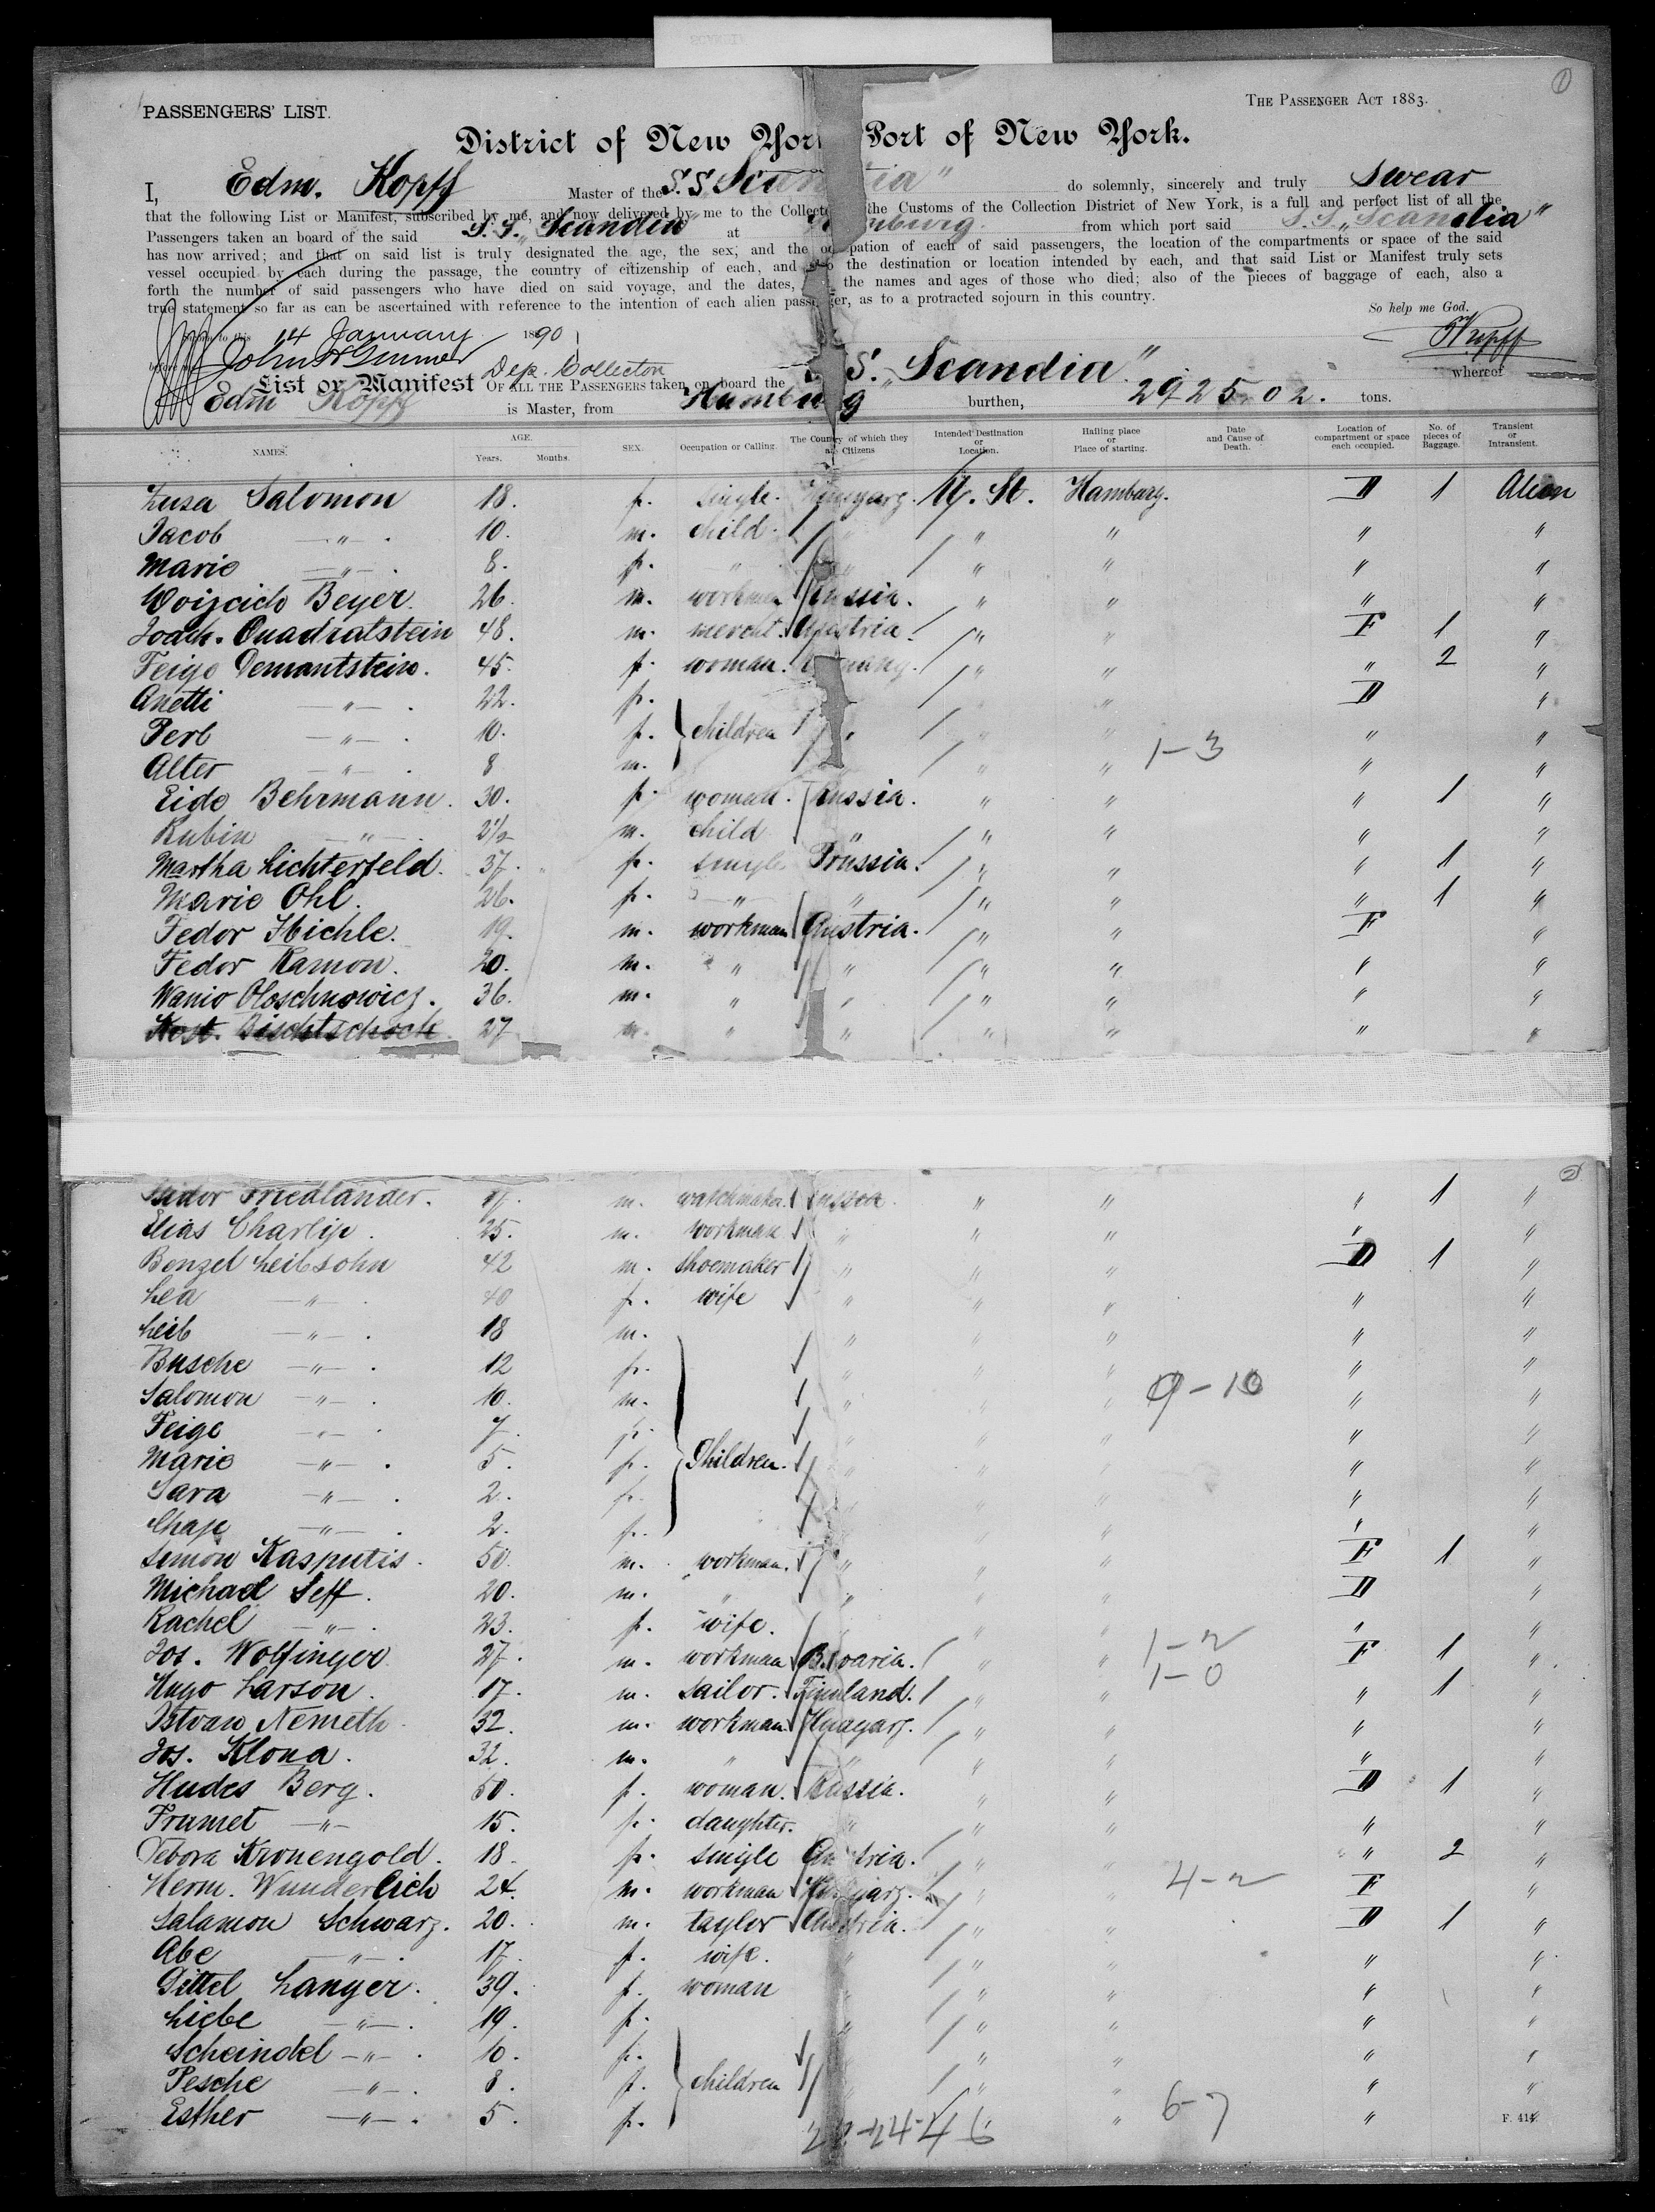 1
PASSENGERS' LIST.
THE PASSENGER ACT 1883.
District of New York Port of New York.
I, Edm. Kopff Master of the S.S. Scandia" do solemnly, sincerely and truly swear
that the following List or Manifest, subscribed by me, and now delivered by me to the Collector the Customs of the Collection District of New York, is a full and perfect list of all the
Passengers taken on board of the said S.S. „Scandia" at Hamburg. from which port said S.S. „Scandia"
has now arrived; and that on said list is truly designated the age, the sex, and the occupation of each of said passengers, the location of the compartments or space of the said
vessel occupied by each during the passage, the country of citizenship of each, and also the destination or location intended by each, and that said List or Manifest truly sets
forth the number of said passengers who have died on said voyage, and the dates, the names and ages of those who died; also of the pieces of baggage of each, also a
true statement so far as can be ascertained with reference to the intention of each alien passenger, as to a protracted sojourn in this country.
So help me God.
to this 14 January 1890
Kopff
Dep. Collector
List or Manifest OF ALL THE PASSENGERS taken on board the S. „Scandia" whereof
Edm Kopff is Master, from Hamburg burthen, 2925.02. tons.
NAMES. AGE. Years. Months. SEX. Occupation or Calling. The Country of which they are Citizens Intended Destination or Location. Hailing place or Place of starting. Date and Cause of Death. Location of compartment or space each occupied. No. of pieces of Baggage. Transient or Intransient.
Salomon 18. f. single. Hungary. U. St. Hamburg. D 1 Alien
Jacob —"— . 10. m. child. " " " " "
Marie —"— . 8. f. " " " " " "
Beyer. 26. m. workman Russia. " " " "
Joach. Quadratstein 48. m. mercht. Austria. " " F 1 "
Feige Demantstein. 45. f. woman. " " " 2 "
Anetti —"— . 22. f. " D "
Perl —"— . 10. f. children " " " " "
Alter —"— . 8 m. " " " "
1-3
Eide Behrmann. 30. f. woman. Russia. " " " 1 "
Rubin —"— . 2½ m. child " " " " "
Martha Lichterfeld. 37. f. single Prussia. " " " 1 "
Marie Ohl. 26. f. " " " " " 1 "
Fedor Hichle. 19. m. workman Austria. " " F "
Fedor Kamon. 20. m. " " " " " "
Wanio Oloschnowicz. 36. m. " " " " " "
Kost. Bischtschock 27 m. " " " " " "
2
Isidor Friedländer. 17. m. watchmaker. Russia. " " " 1 "
Elias Charlip. 25. m. workman " " " " "
Benzel Leibsohn 42 m. shoemaker " " " D 1 "
Lea —"— . 40 f. wife " " " " "
Leib —"— . 18 m. " " " " "
Busche —"— . 12 f. " " " " "
Salomon —"— . 10. m. " " " " "
9-10
Feige —"— . 7. f. " " " " "
Marie —"— . 5. f. Children. " " " "
Sara —"— . 2. f. " " " " "
Chaje —"— . 2. f. " " " "
Simon Kasputis. 50. m. workman. " " " F 1 "
Michael Seff. 20. m. " " " " D "
Rachel —"— . 23. f. wife. " " " "
1-2
Jos. Wolfinger 27. m. workman Bavaria. " " F 1 "
1-0
Hugo Larson. 17. m. sailor. Finnland. " " " 1 "
Istvan Nemeth. 32. m. workman Hungary. " " " "
Jos. Klona. 32. m. " " " " " "
Hudes Berg. 50. f. woman. Russia. " " D 1 "
Frumet —"— 15. f. daughter. " " " " "
Debora Kronengold. 18. f. single Austria. " " " 2 "
4-2
Herm. Wunderlich 24. m. workman Hungary. " " F "
Salamon Schwarz. 20. m. taylor Austria. " " D 1 "
Abe —"— . 17. f. wife. " " " " "
Gittel Langer. 39. f. woman " " " " "
Liebe —"— . 19. f. " " " " "
Scheindel —"— . 10. f. " " " "
Pesche —"— . 8. f. children " " " "
Esther —"— . 5. f. " " "
6-7
F. 414.